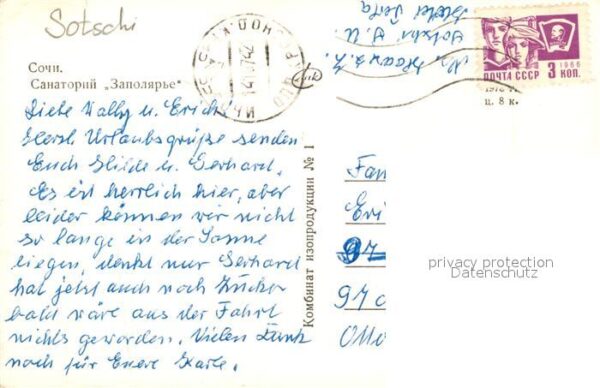 Sotschi
Сочи.
Санаторий „Заполярье"
Liebe Wally u. Erich!
Herzl. Urlaubsgrüße senden
Euch Hilde u. Gerhard.
Es ist herrlich hier, aber
leider können wir nicht
so lange in der Sonne
liegen, denkt nur Gerhard
hat jetzt auch noch Zucker
bald wäre aus der Fahrt
nichts geworden. Vielen Dank
noch für Euere Karte.
Комбинат изопродукции № 1
ПОЧТА СССР 3 КОП.
1966
ц. 8 к.
Fam
Eri
97
privacy protection
Datenschutz
Otto